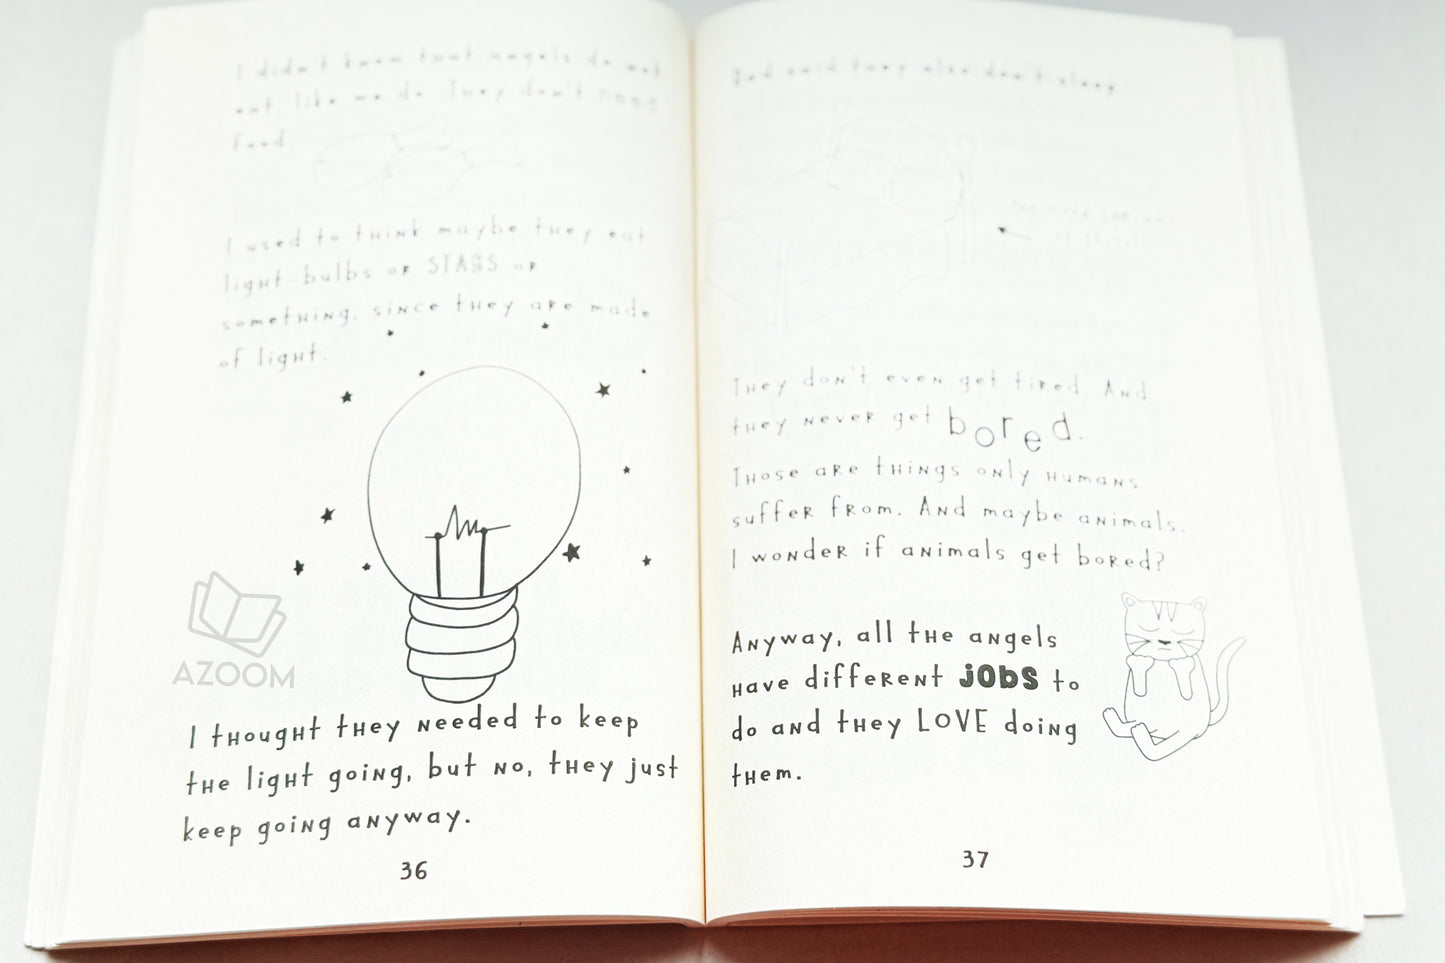 I didn't know that angels do not
eat, like we do. They don't need
food.
I used to think maybe they eat
light-bulbs or STARS or
something, since they are made
of light.
AZOOM
I thought they needed to keep
the light going, but no, they just
keep going anyway.
36
Dad said they also don't sleep.
They don't even get tired. And
they never get bored.
Those are things only humans
suffer from. And maybe animals.
I wonder if animals get bored?
Anyway, all the angels
have different jobs to
do and they LOVE doing
them.
37